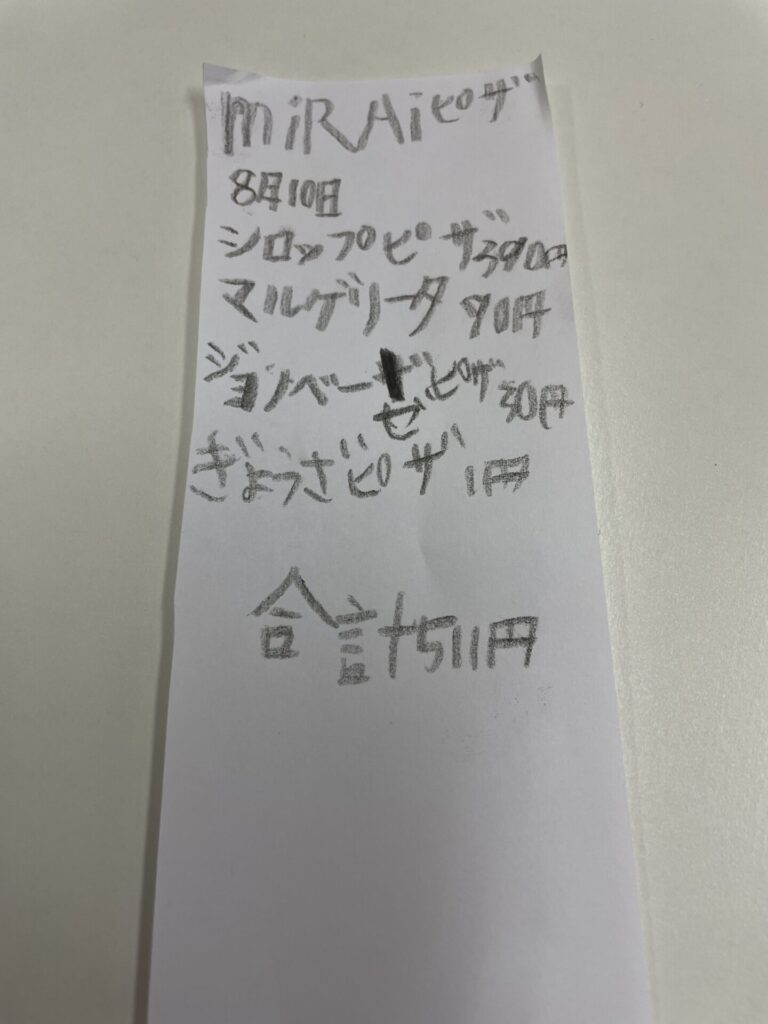 miRAiピザ
8月10日
シロップピザ390円
マルゲリータ 90円
ジョノベーゼピザ30円
ぎょうざピザ 1円
合計511円